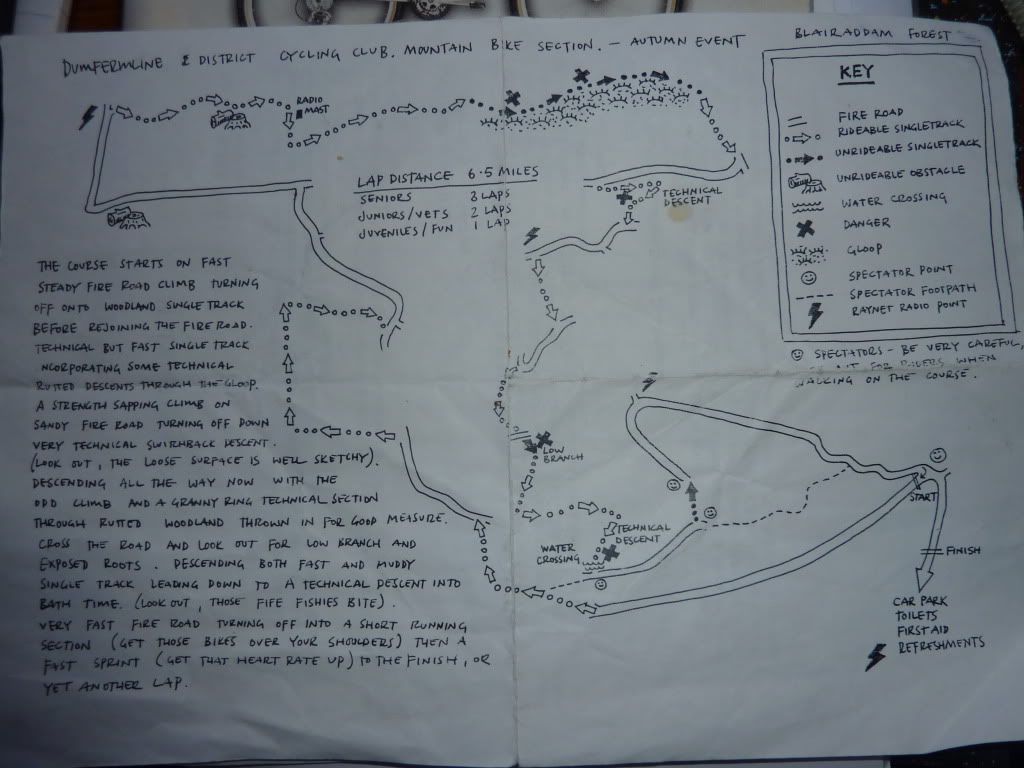 DUNFERMLINE & DISTRICT CYCLING CLUB. MOUNTAIN BIKE SECTION. – AUTUMN EVENT
BLAIRADDAM FOREST
KEY
FIRE ROAD
RIDEABLE SINGLETRACK
UNRIDEABLE SINGLETRACK
UNRIDEABLE OBSTACLE
WATER CROSSING
DANGER
GLOOP
SPECTATOR POINT
SPECTATOR FOOTPATH
RAYNET RADIO POINT
SPECTATORS – BE VERY CAREFUL,
FOR RIDERS WHEN
WALKING ON THE COURSE.
RADIO
MAST
LAP DISTANCE 6.5 MILES
SENIORS 3 LAPS
JUNIORS/VETS 2 LAPS
JUVENILES/FUN 1 LAP
TECHNICAL
DESCENT
THE COURSE STARTS ON FAST
STEADY FIRE ROAD CLIMB TURNING
OFF ONTO WOODLAND SINGLE TRACK
BEFORE REJOINING THE FIRE ROAD.
TECHNICAL BUT FAST SINGLE TRACK
INCORPORATING SOME TECHNICAL
RUTTED DESCENTS THROUGH THE GLOOP.
A STRENGTH SAPPING CLIMB ON
SANDY FIRE ROAD TURNING OFF DOWN
VERY TECHNICAL SWITHBACK DESCENT.
(LOOK OUT, THE LOOSE SURFACE IS WELL SKETCHY).
DESCENDING ALL THE WAY NOW WITH THE
ODD CLIMB AND A GRANNY RING TECHNICAL SECTION
THROUGH RUTTED WOODLAND THROWN IN FOR GOOD MEASURE.
CROSS THE ROAD AND LOOK OUT FOR LOW BRANCH AND
EXPOSED ROOTS. DESCENDING BOTH FAST AND MUDDY
SINGLE TRACK LEADING DOWN TO A TECHNICAL DESCENT INTO
BATH TIME. (LOOK OUT, THOSE FIFE FISHIES BITE).
VERY FAST FIRE ROAD TURNING OFF INTO A SHORT RUNNING
SECTION (GET THOSE BIKES OVER YOUR SHOULDERS) THEN A
FAST SPRINT (GET THAT HEART RATE UP) TO THE FINISH, OR
YET ANOTHER LAP.
LOW
BRANCH
TECHNICAL
DESCENT
WATER
CROSSING
START
FINISH
CAR PARK
TOILETS
FIRST AID
REFRESHMENTS